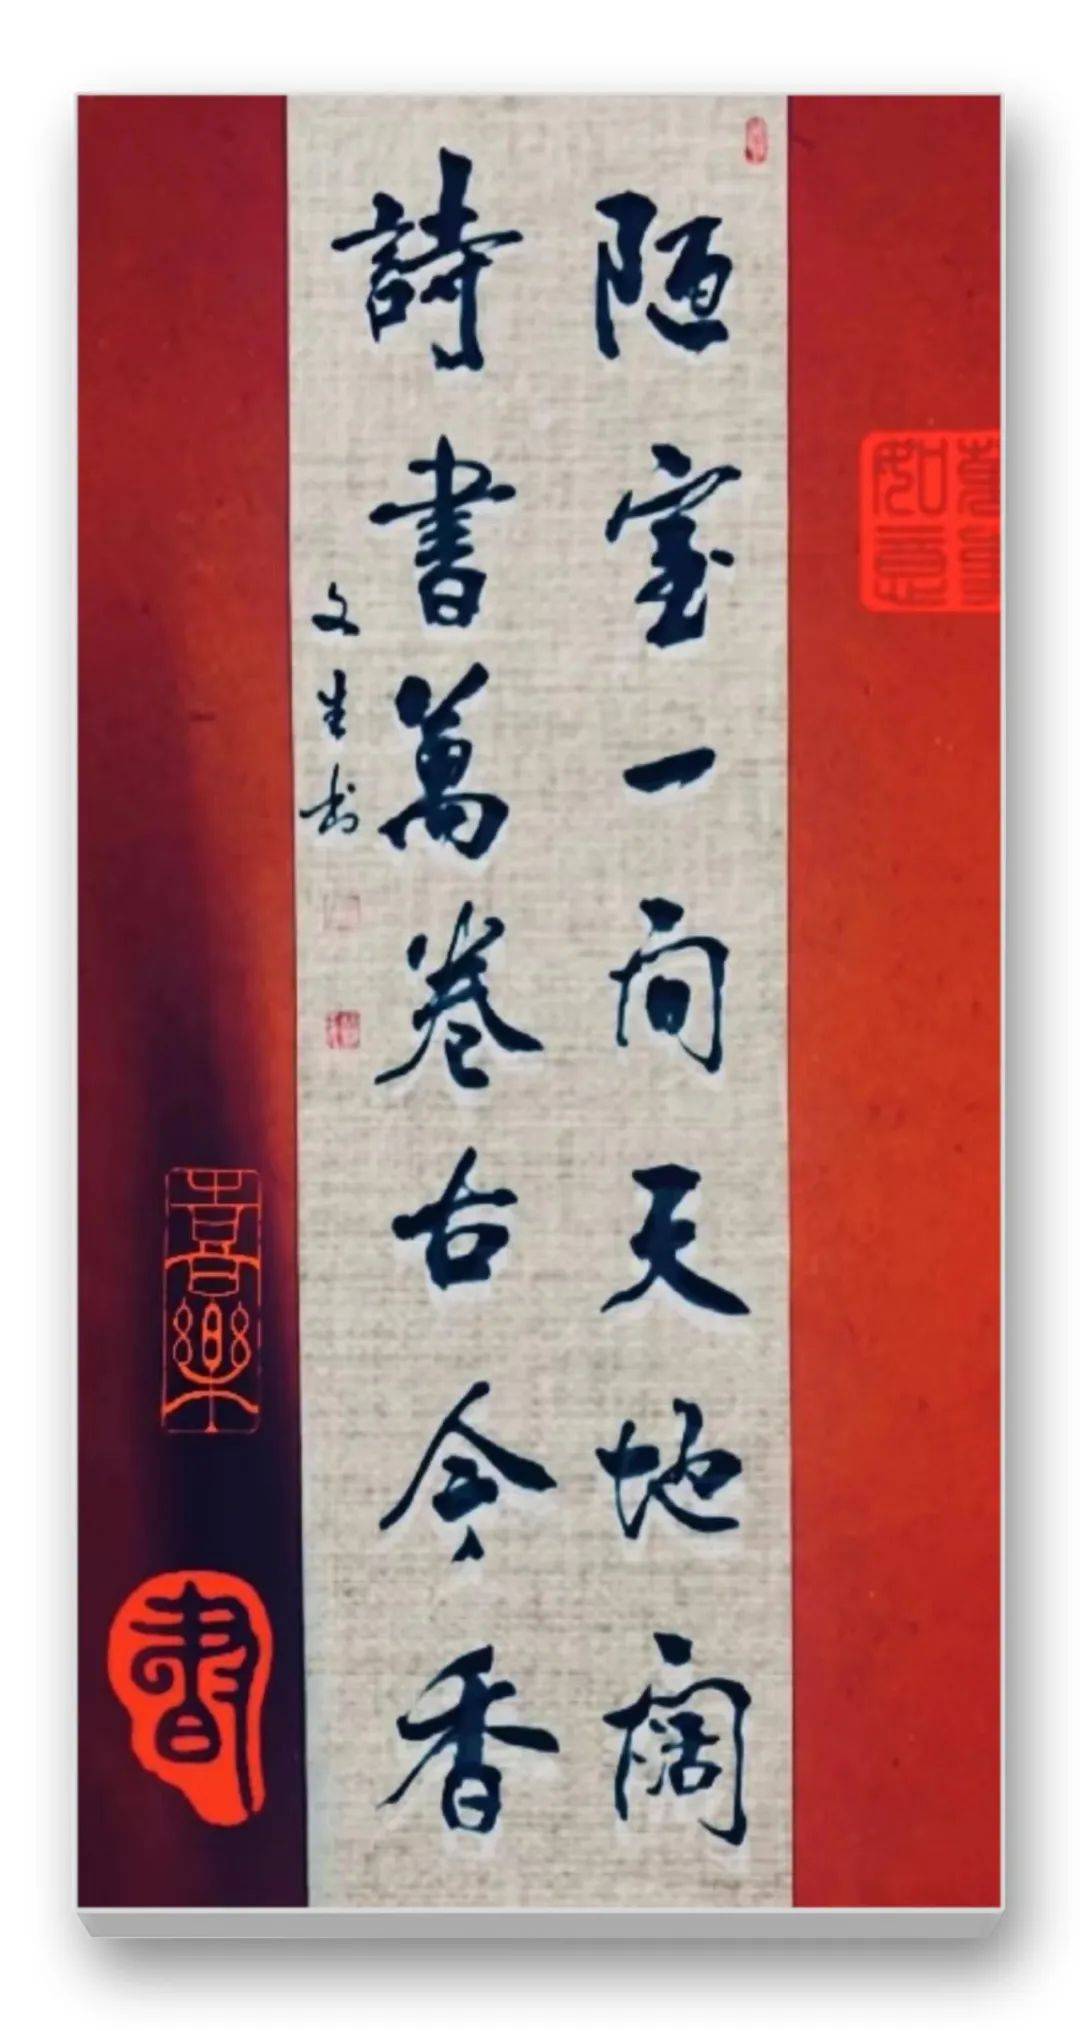 陋室一间天地阔
詩書萬卷古今香
文生书
如意
喜樂
書